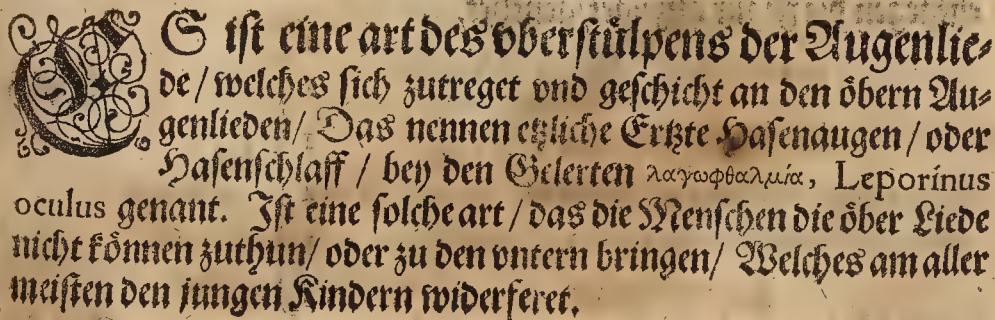 ES ist eine art des vberstülpens der Augenlie⸗
de / welches sich zutreget vnd geschicht an den öbern Au⸗
genlieden / Das nennen etzliche Ertzte Hasenaugen / oder
Hasenschlaff / bey den Gelerten λαγωφθαλμία, Leporinus
oculus genant. Ist eine solche art / das die Menschen die öber Liede
nicht können zuthun / oder zu den vntern bringen / Welches am aller
meisten den jungen Kindern widerferet.